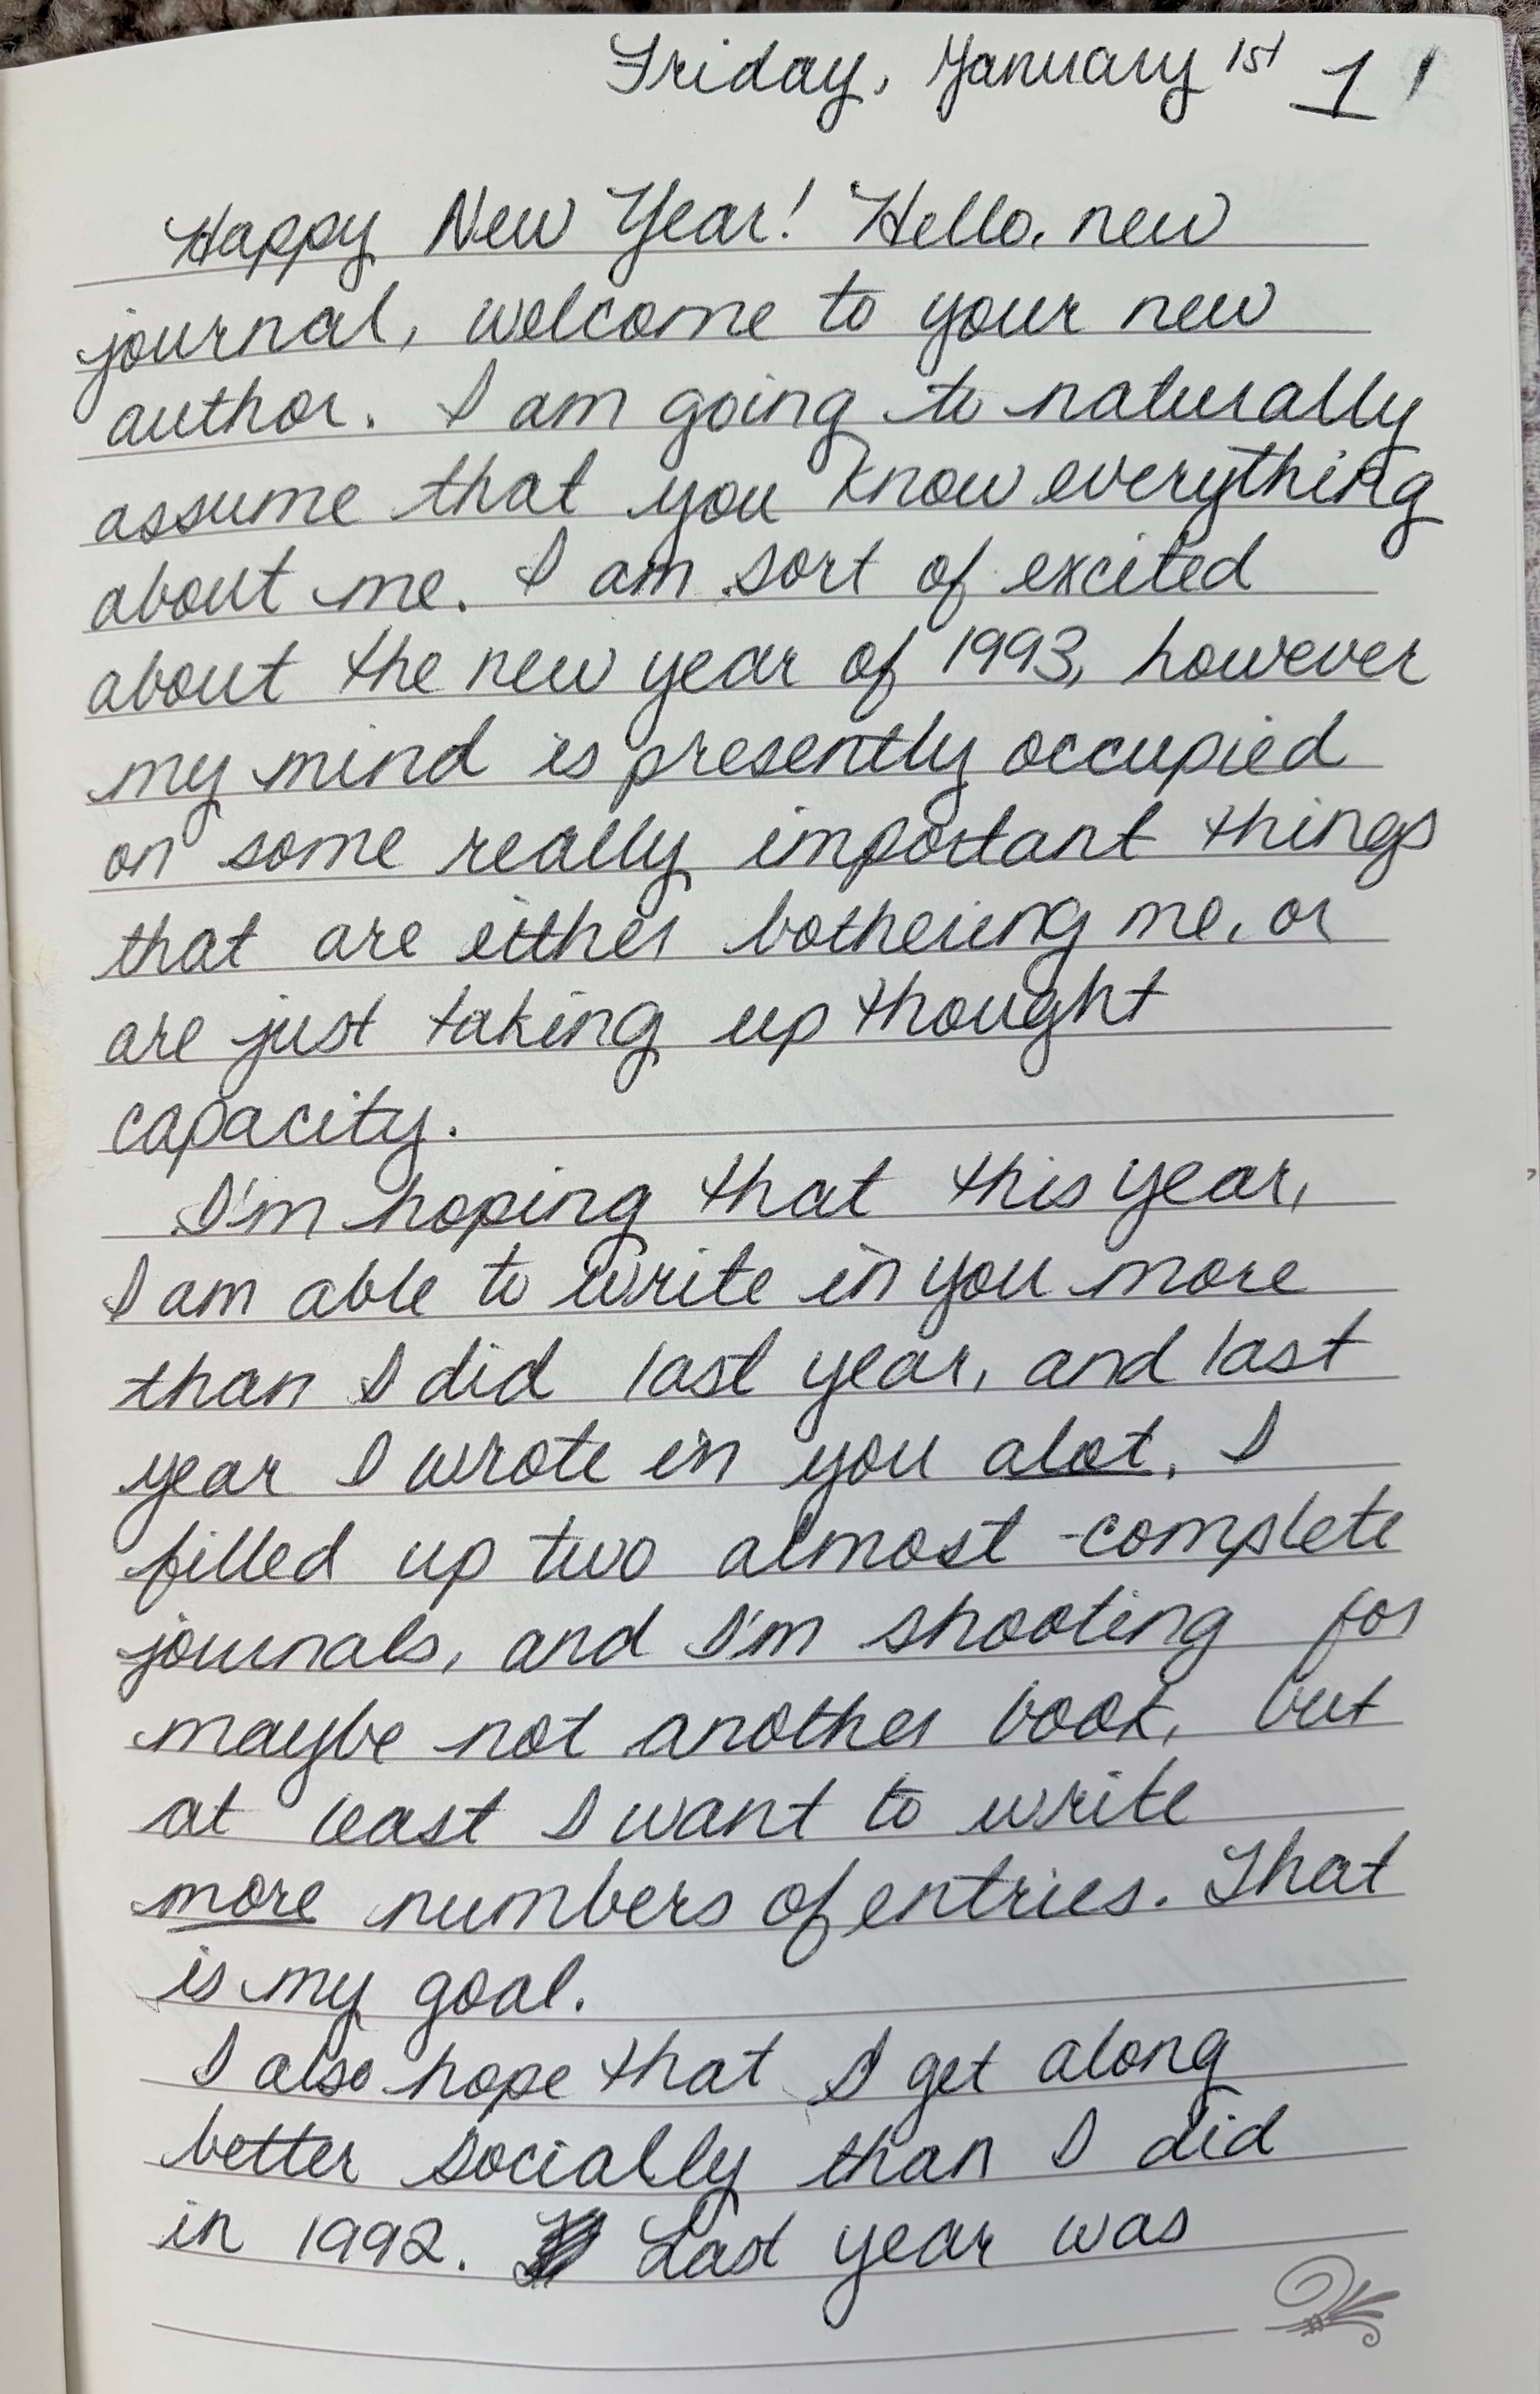 Friday, January 1st 1
Happy New Year! Hello, new
journal, welcome to your new
author. I am going to naturally
assume that you know everything
about me. I am sort of excited
about the new year of 1993, however
my mind is presently occupied
on some really important things
that are either bothering me, or
are just taking up thought
capacity.
I'm hoping that this year,
I am able to write in you more
than I did last year, and last
year I wrote in you alot. I
filled up two almost-complete
journals, and I'm shooting for
maybe not another book, but
at least I want to write
more numbers of entries. That
is my goal.
I also hope that I get along
better socially than I did
in 1992. Last year was